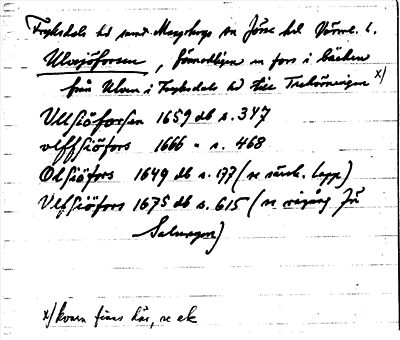 Fryksdals hd samt Mangskogs sn Jösse hd Värml. l.
Ulvsjöforsen, förmodligen en fors i bäcken
från Ulven i Fryksdals hd till Treskörningen x)
Ullsiöforsen 1659 db s. 347
olffsiöfors 1666 " s. 468
Olsiöfors 1649 db s. 177 (se särsk. lapp)
Ulfsiöfors 1675 db s. 615 (se rågång Jö
Salungen)
x) kvarn finns här, se ek